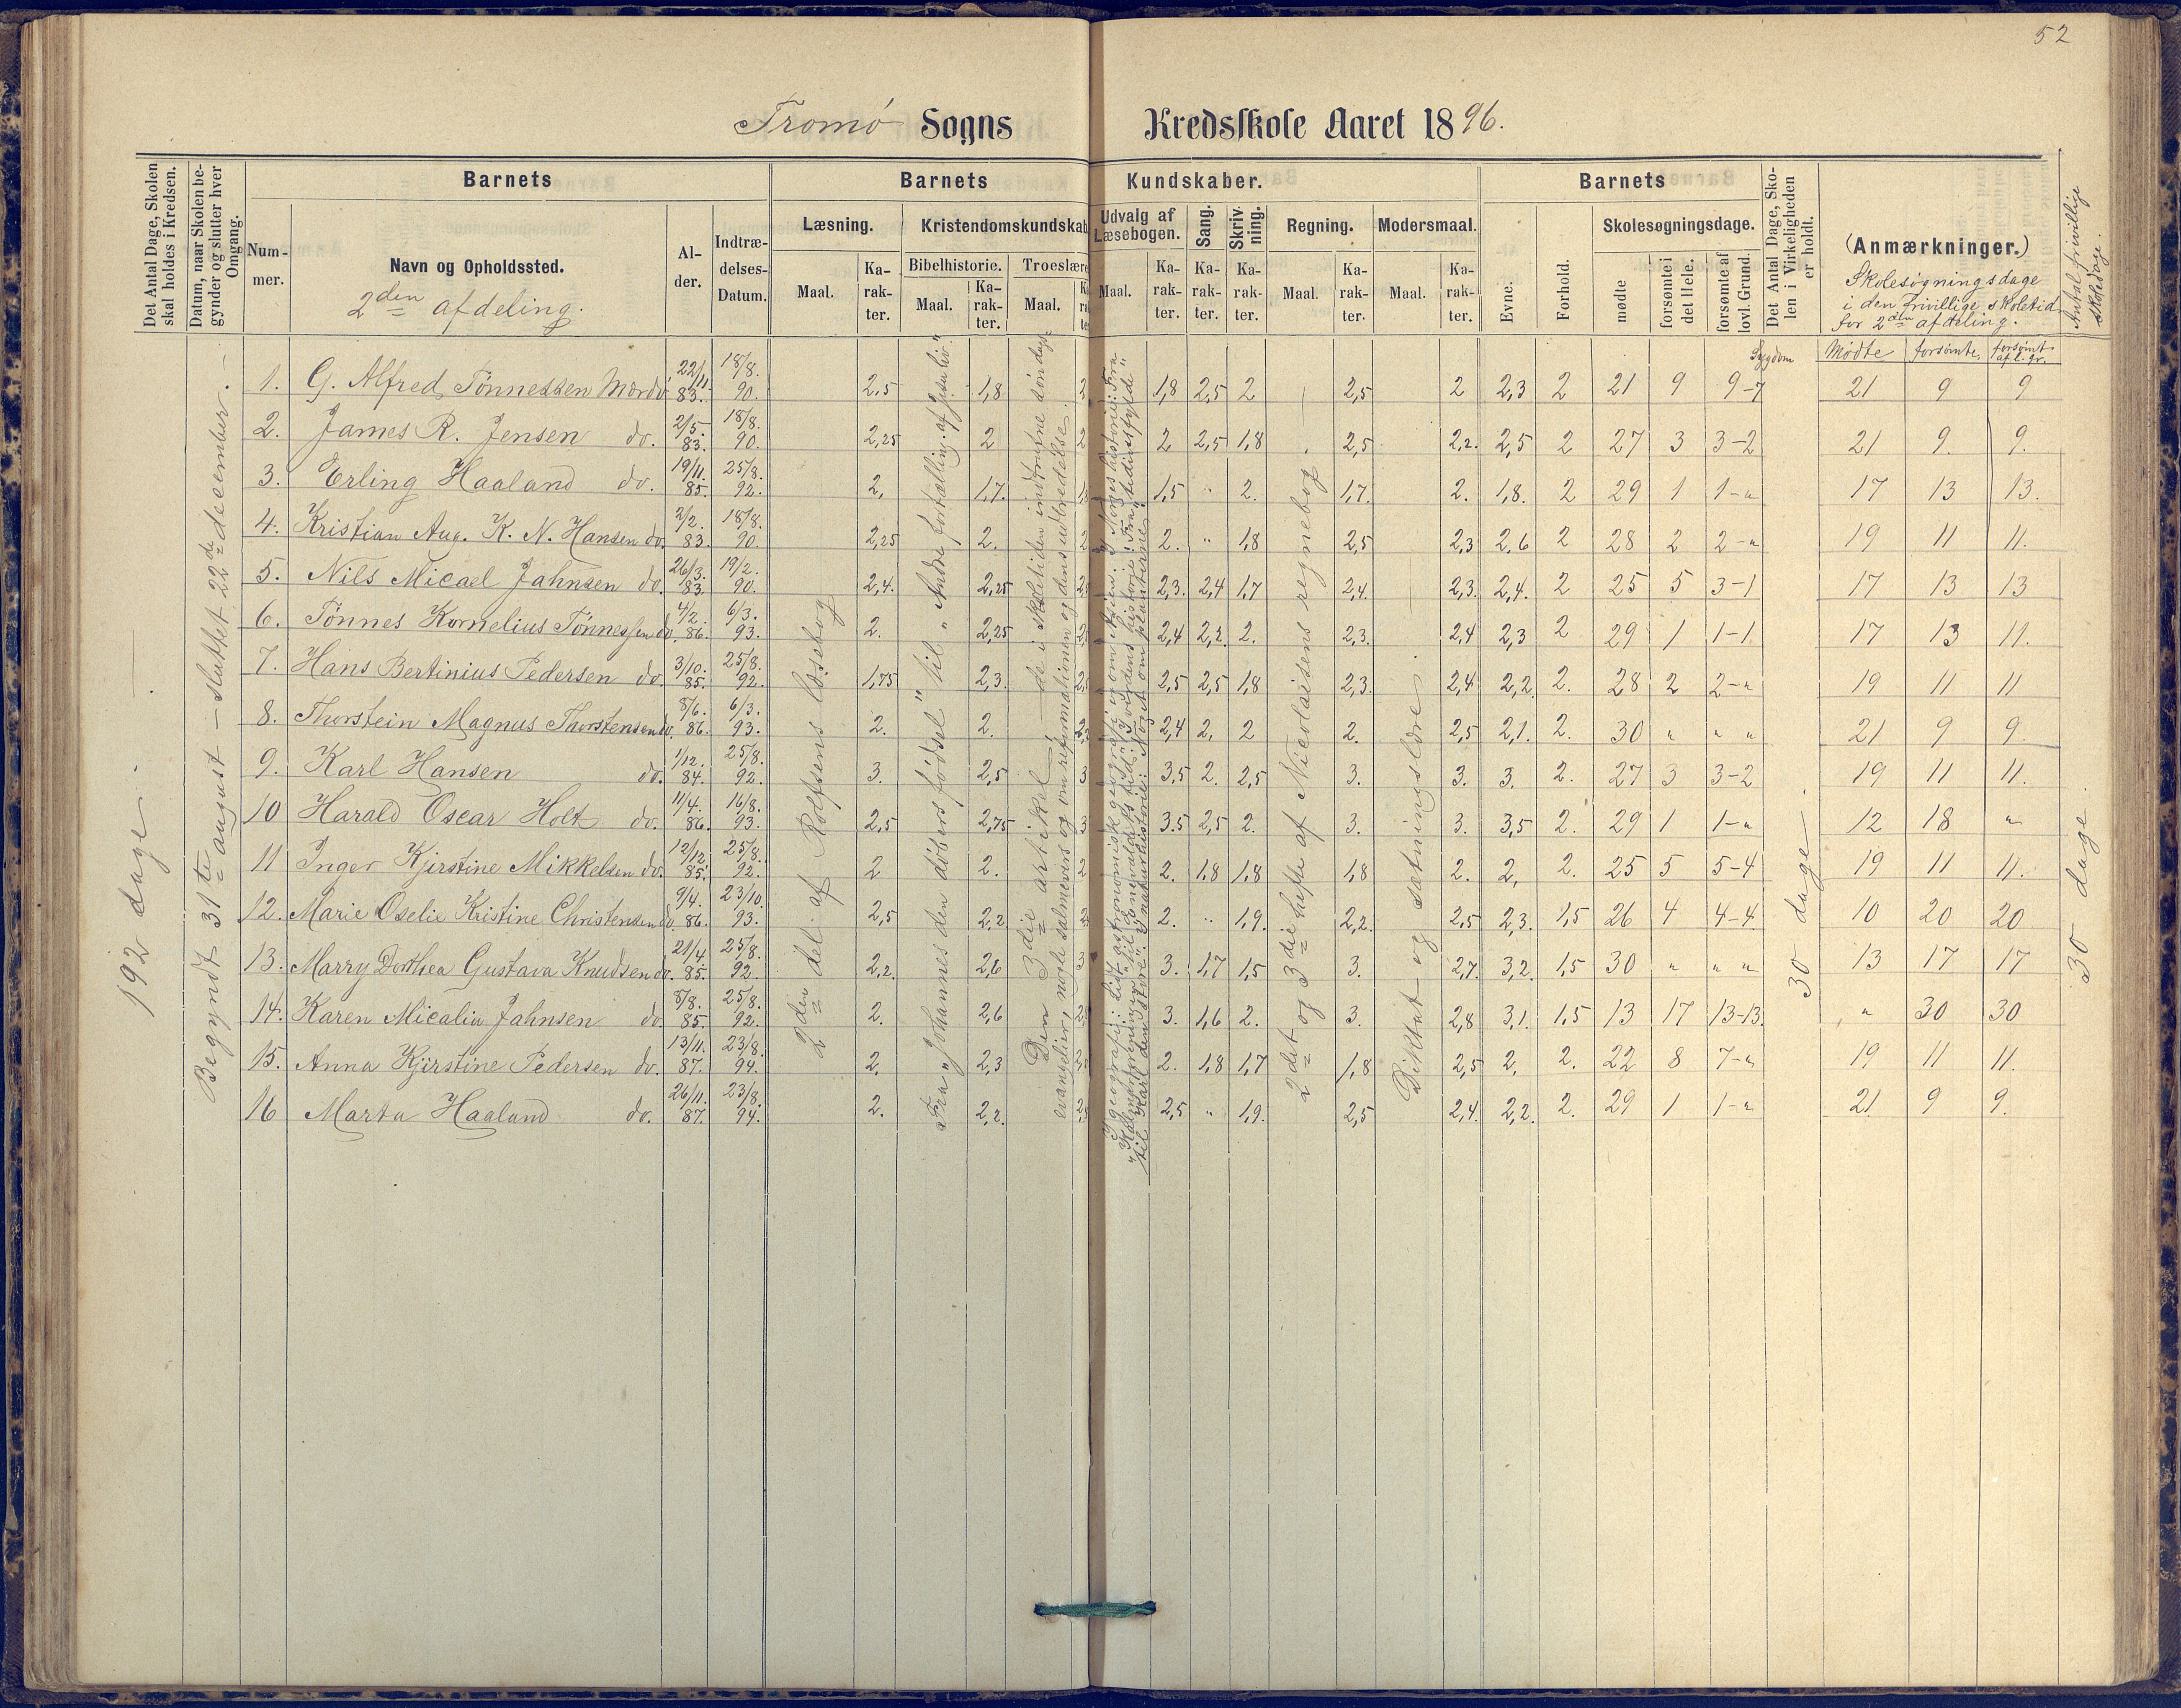 52
Tromø Sogns Kredsskole Aaret 1896.
Det Antal Dage, Skolen skal holdes i Kredsen.
Datum, naar Skolen begynder og slutter hver Omgang.
Barnets
Nummer.
Navn og Opholdssted.
2den afdeling.
Alder.
Indtrædelses-Datum.
Barnets Kundskaber.
Læsning.
Maal.
Karakter.
Kristendomskundskab
Bibelhistorie.
Maal.
Karakter.
Troeslære
Maal.
Udvalg af Læsebogen.
Maal.
Karakter.
Sang.
Karakter.
Skrivning.
Karakter.
Regning.
Maal.
Karakter.
Modersmaal.
Maal.
Karakter.
Barnets
Evne.
Forhold.
Skolesøgningsdage.
mødte
forsømte i det Hele.
forsømte af lovl. Grund.
Det Antal Dage, Skolen i Virkeligheden er holdt.
(Anmærkninger.)
Skolesøgningsdage i den frivillige skoletid for 2den afdeling.
Antal frivillige skoledage.
Sygdom
Mødte forsømte, forsømt af l. gr.
192 dage.
Begyndt 31te august – sluttet 22de december.
2den del af Rolfsens læsebog
Fra „Johannes den døbers fødsel" til „Andre fortælling. af Jesu liv"
Den 3die artikel,
evangelier, nogle salmevers og om reformationen og dens udbredelse.
de i skoletiden indtrufne søndags
2det og 3die hefte af Nicolaisens regnebog
Diktat og sætningslære.
30 dage.
30 dage.
1. G. Alfred Tønnessen Mærdø 22/11. 83. 18/8. 90. 2,5 1,8 2 1,8 2,5 2 2,5 2 2,3 2 21 9 9-7 21 9 9
2. James R. Jensen do. 2/5. 83. 18/8. 90. 2,25 2 2 2 2,5 1,8 2,5 2,2. 2,5 2 27 3 3-2 21 9. 9.
3. Erling Haaland do. 19/11. 85. 25/8. 92. 2, 1,7. 1,5 " 2. 1,7. 2. 1,8. 2 29 1 1-" 17 13 13.
4. Kristian Aug. K. N. Hansen do. 2/2. 83. 18/8. 90. 2,25 2. 2 2. " 1,8 2,5 2,3 2,6 2 28 2 2-" 19 11 11.
5. Nils Micael Jahnsen do. 26/3. 83. 19/2. 90. 2,4. 2,25 2,3. 2,4 1,7 2,4. 2,3. 2,4. 2 25 5 3-1 17 13 13
6. Tønnes Kornelius Tønnessen do. 4/2. 86. 6/3. 93. 2. 2,25 2,4 2,2. 2. 2,3. 2,4 2,3 2 29 1 1-1 17 13 11.
7. Hans Bertinius Pedersen do. 3/10. 85. 25/8. 92. 1,75 2,3. 2,5 2,5 1,8 2,3. 2,4 2,2. 2. 28 2 2-" 19 11 11
8. Thorstein Magnus Thorstensen do. 8/6. 86. 6/3. 93. 2. 2. 2,4 2. 2 2. 2,5 2,1. 2. 30 " " " 21 9 9.
9. Karl Hansen do. 1/12. 84. 25/8. 92. 3. 2,5 3 3,5 2. 2,5 3. 3. 3. 2. 27 3 3-2 19 11 11.
10 Harald Oscar Holt do. 11/4. 86. 16/8. 93. 2,5 2,75 3 3.5 2,5 2. 3. 3. 3,5 2. 29 1 1-" 12 18 "
11 Inger Kjerstine Mikkelsen do. 12/12. 85. 25/8. 92. 2 2. 2 2. 1,8 1,8 1,8 2. 2, 2. 25 5 5-4 19 11 11.
12. Marie Oselie Kristine Christensen do. 9/4. 86. 23/10. 93. 2,5 2,2. 2 2. " 1,9. 2,2. 2,5 2,3. 1,5 26 4 4-4 10 20 20
13. Marry Dorthea Gustava Knudsen do. 21/4. 85. 25/8. 92. 2,2. 2,6 3 3. 1,7 1,5 3. 2,7. 3,2. 1,5 30 " " " 13 17 17
14. Karen Micalia Jahnsen do. 8/8. 85. 25/8. 92. 2. 2,6 3. 1,6 2. 3. 2,8 3,1. 1,5 13 17 13-13. " 30 30
15. Anna Kjirstine Pedersen do. 13/11. 87. 23/8. 94. 2. 2,3 2. 1,8 1,7 1,8 2,5 2. 2. 22 8 7-" 19 11 11.
16 Marta Haaland do. 26/11. 87. 23/8. 94. 2. 2,2. 2,5 " 1,9. 2,5 2,4. 2,2. 2. 29 1 1-" 21 9 9.